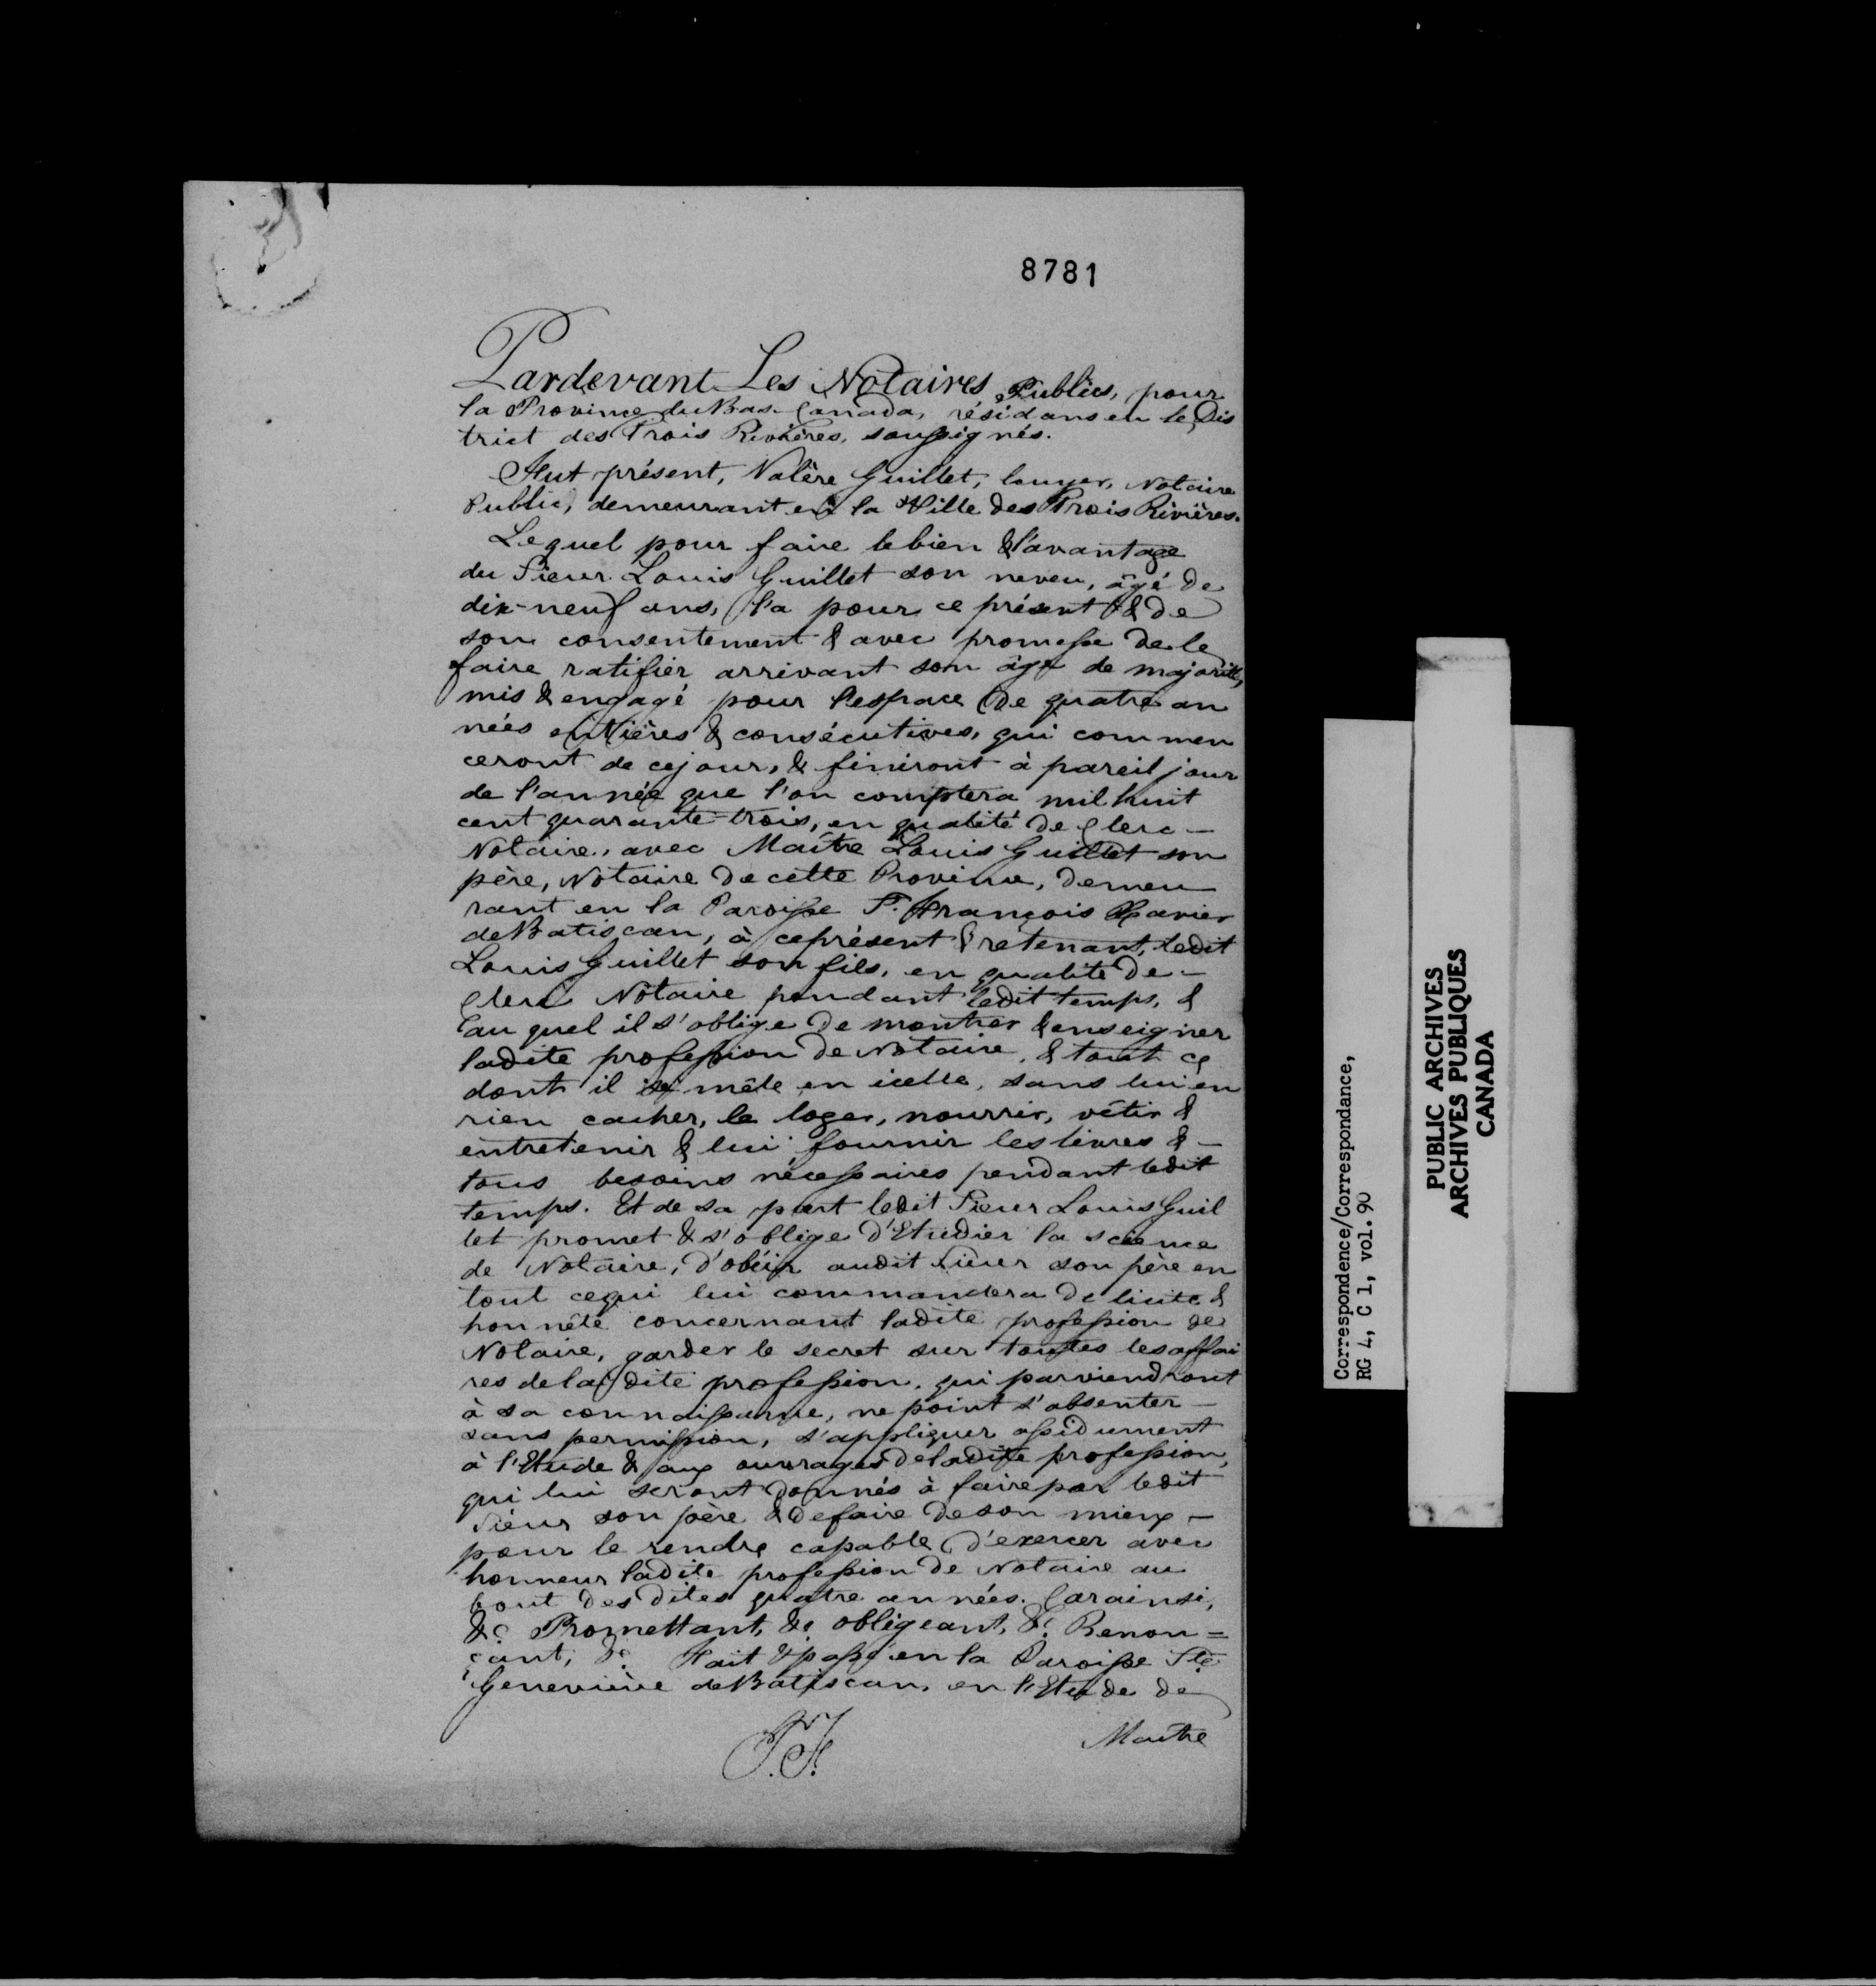 8781
Pardevant Les Notaires Publics, pour
la Province du Bas-Canada, résidans en le Dis
trict des Trois Rivières, soussignés.
Fut présent, Valère Guillet, Ecuyer, Notaire
Public, demeurant en la Ville des Trois Rivières.
Lequel pour faire le bien & l'avantage
du Sieur Louis Guillet son neveu, âgé de
dix-neuf ans, l'a pour ce présent & de
son consentement & avec promesse de le
faire ratifier arrivant son âge de majorité,
mis & engagé pour l'espace de quatre an
nées entières & consécutives, qui commen
ceront de ce jour, & finiront à pareil jour
de l'année que l'on comptera mil huit
cent quarante-trois, en qualité de Clerc-
Notaire, avec Maître Louis Guillet son
père, Notaire de cette Province, demeu
rant en la Paroisse St. François Xavier
de Batiscan, à ce présent & retenant, ledit
Louis Guillet son fils, en qualité de-
Clerc Notaire pendant ledit temps, &
au quel il s'oblige de montrer & enseigner
ladite profession de Notaire, & tout ce
dont il se mêle en icelle, sans lui en
rien cacher, le loger, nourrir, vêtir &
entretenir & lui fournir les livres & -
tous besoins nécessaires pendant ledit
temps. Et de sa part ledit Sieur Louis Guil
let promet & s'oblige d'Etudier la science
de Notaire, d'obéir audit Sieur son père en
tout ce qui lui commandera de licite &
honnête concernant ladite profession de
Notaire, garder le secret sur toutes les affai
res de la dite profession, qui parviendront
à sa connaissance, ne point s'absenter -
sans permission, s'appliquer assidument
à l'Etude & aux ouvrages de ladite profession,
qui lui seront donnés à faire par ledit
Sieur son père & de faire de son mieux -
pour le rendre capable d'exercer avec
honneur ladite profession de Notaire au
bout des dites quatre années. Car ainsi,
&c. Promettant, &c. obligeant, &c. Renon=
çant, &c. Fait & passé en la Paroisse Ste.
Geneviève de Batiscan, en l'Etude de
Maître
Correspondence/Correspondance,
RG 4, C 1, vol. 90
PUBLIC ARCHIVES
ARCHIVES PUBLIQUES
CANADA